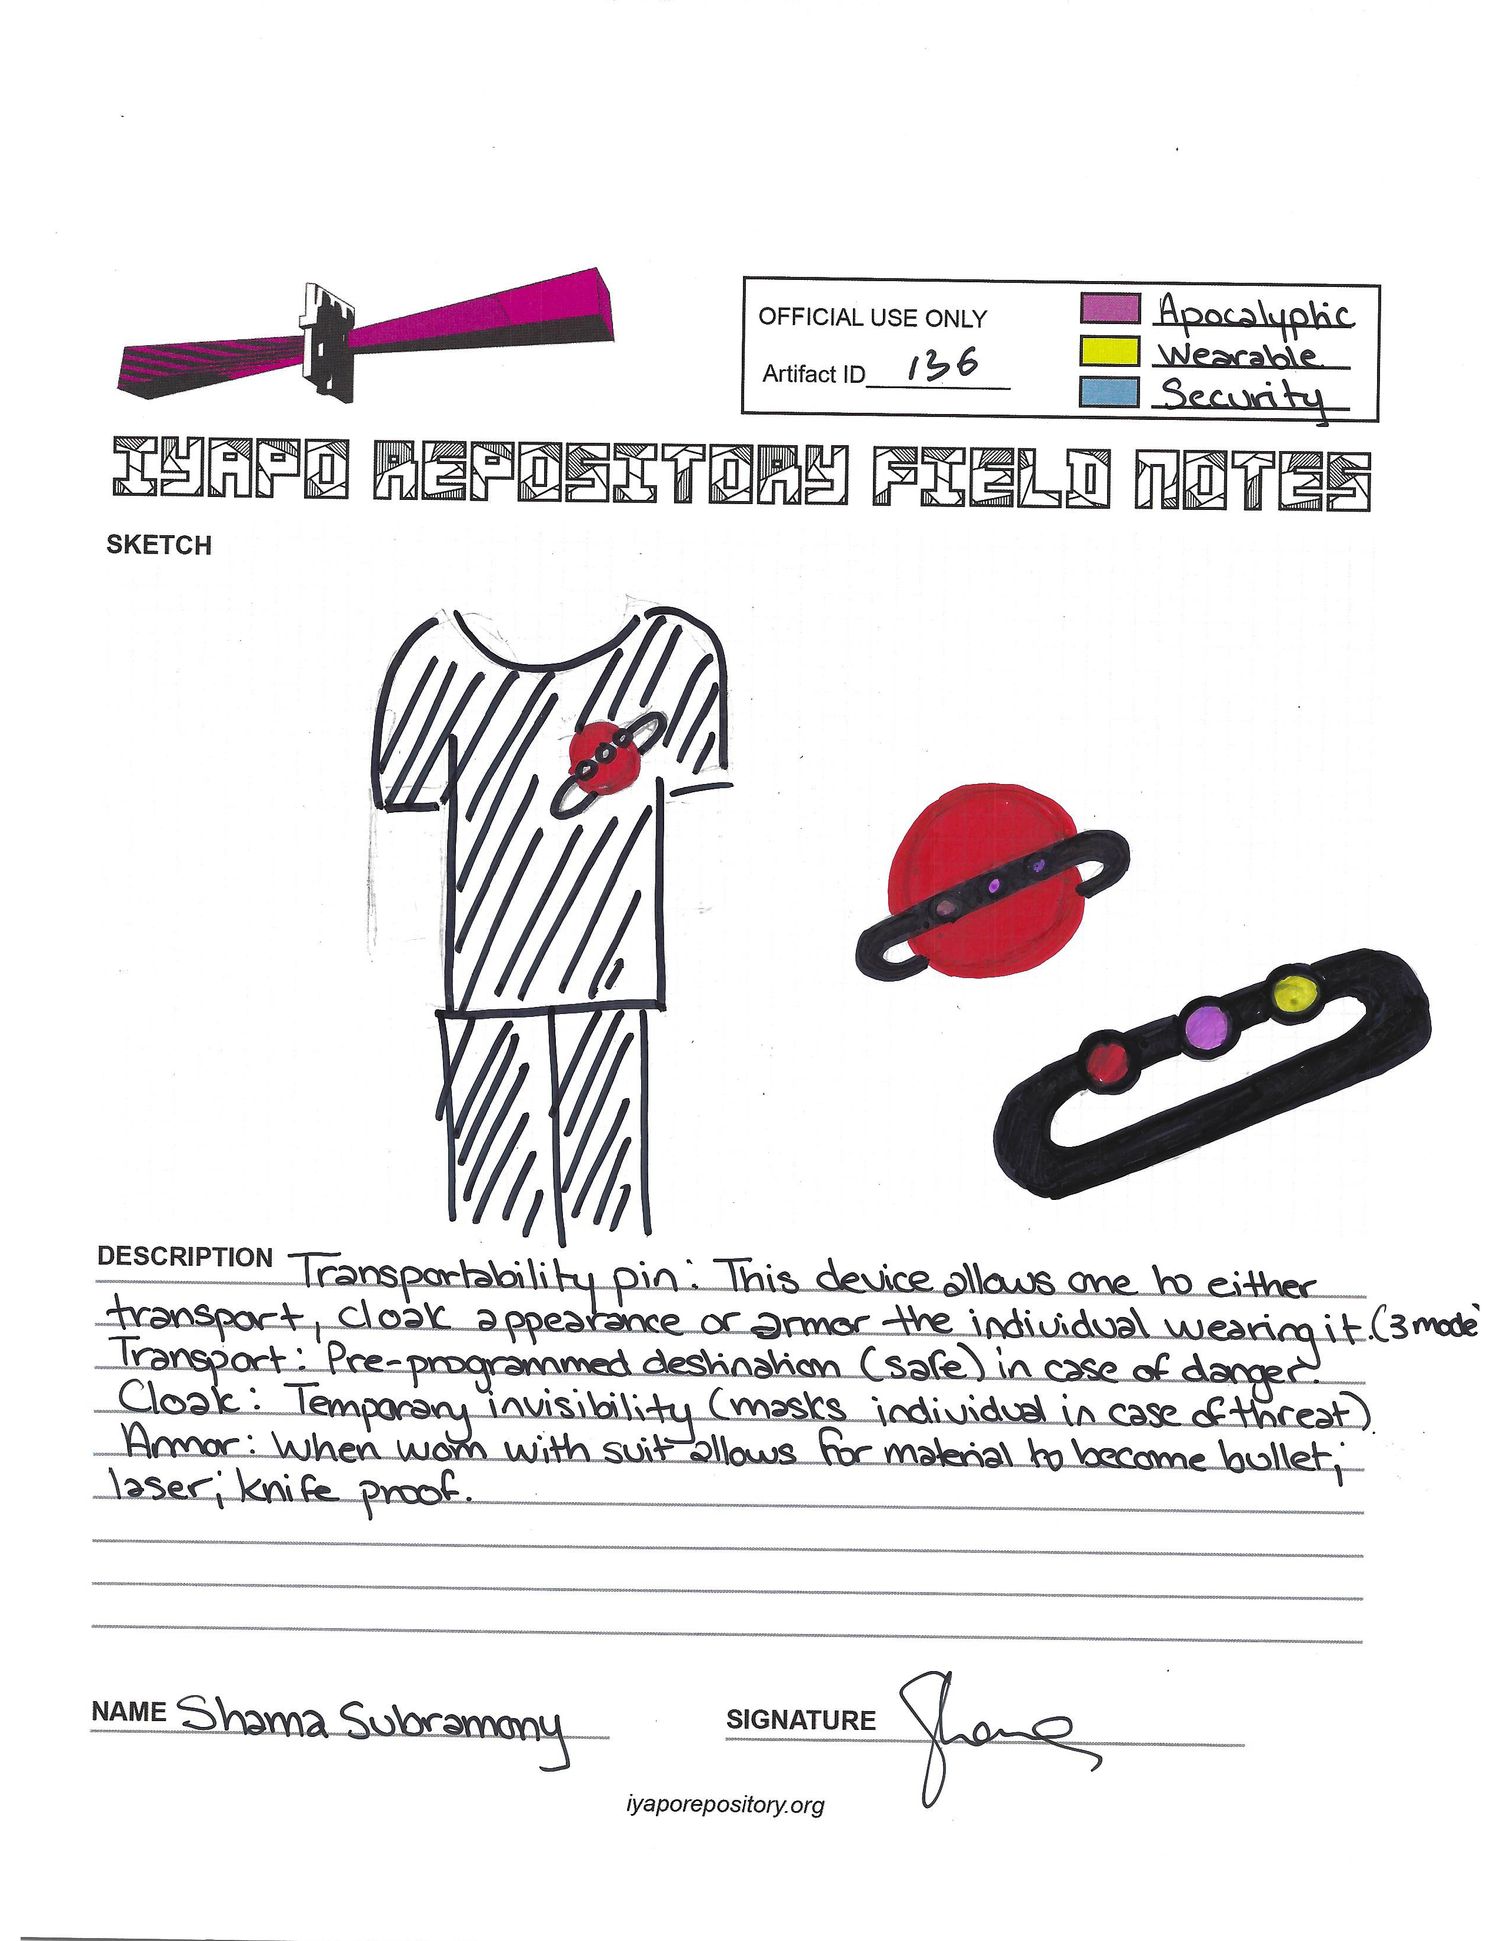 OFFICIAL USE ONLY
Artifact ID 136
Apocalyptic
Wearable
Security
IYAPO REPOSITORY FIELD NOTES
SKETCH
DESCRIPTION Transportability pin: This device allows one to either
transport, cloak appearance or armor the individual wearing it. (3 mode
Transport: Pre-programmed destination (safe) in case of danger.
Cloak: Temporary invisibility (masks individual in case of threat).
Armor: When worn with suit allows for material to become bullet;
laser; knife proof.
NAME Shama Subramony
SIGNATURE Shama
iyaporepository.org